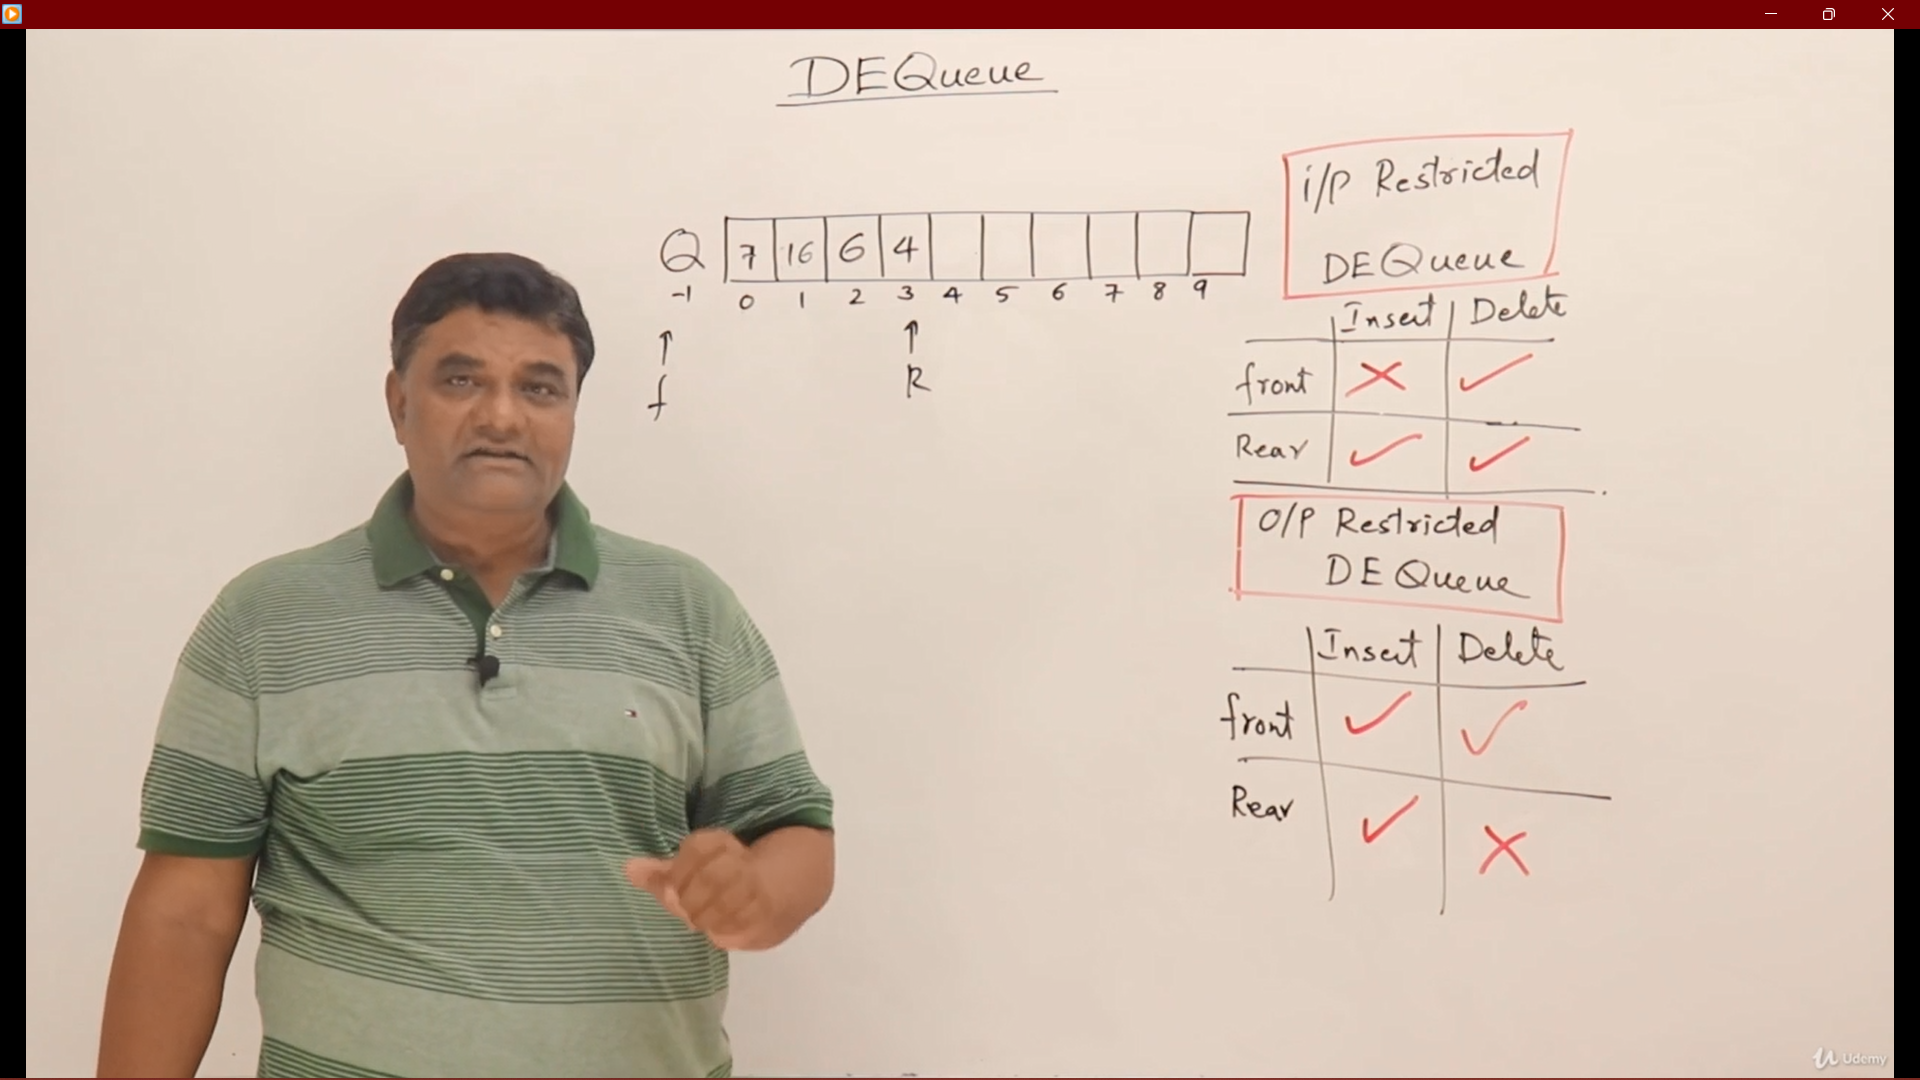 DEQueue
Q 7 16 6 4
-1 0 1 2 3 4 5 6 7 8 9
f R
i/p Restricted
DEQueue
Insert Delete
front
Rear
O/P Restricted
DEQueue
Insert Delete
front
Rear
Udemy